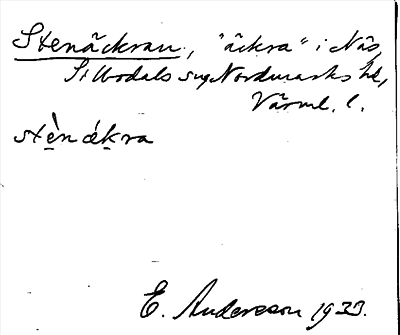 Stenäckran, "äckra" i Näs,
Sillbodals sn, Nordmarks hd,
Värml. l.
stè̀n ákra
E. Andersson 1933.